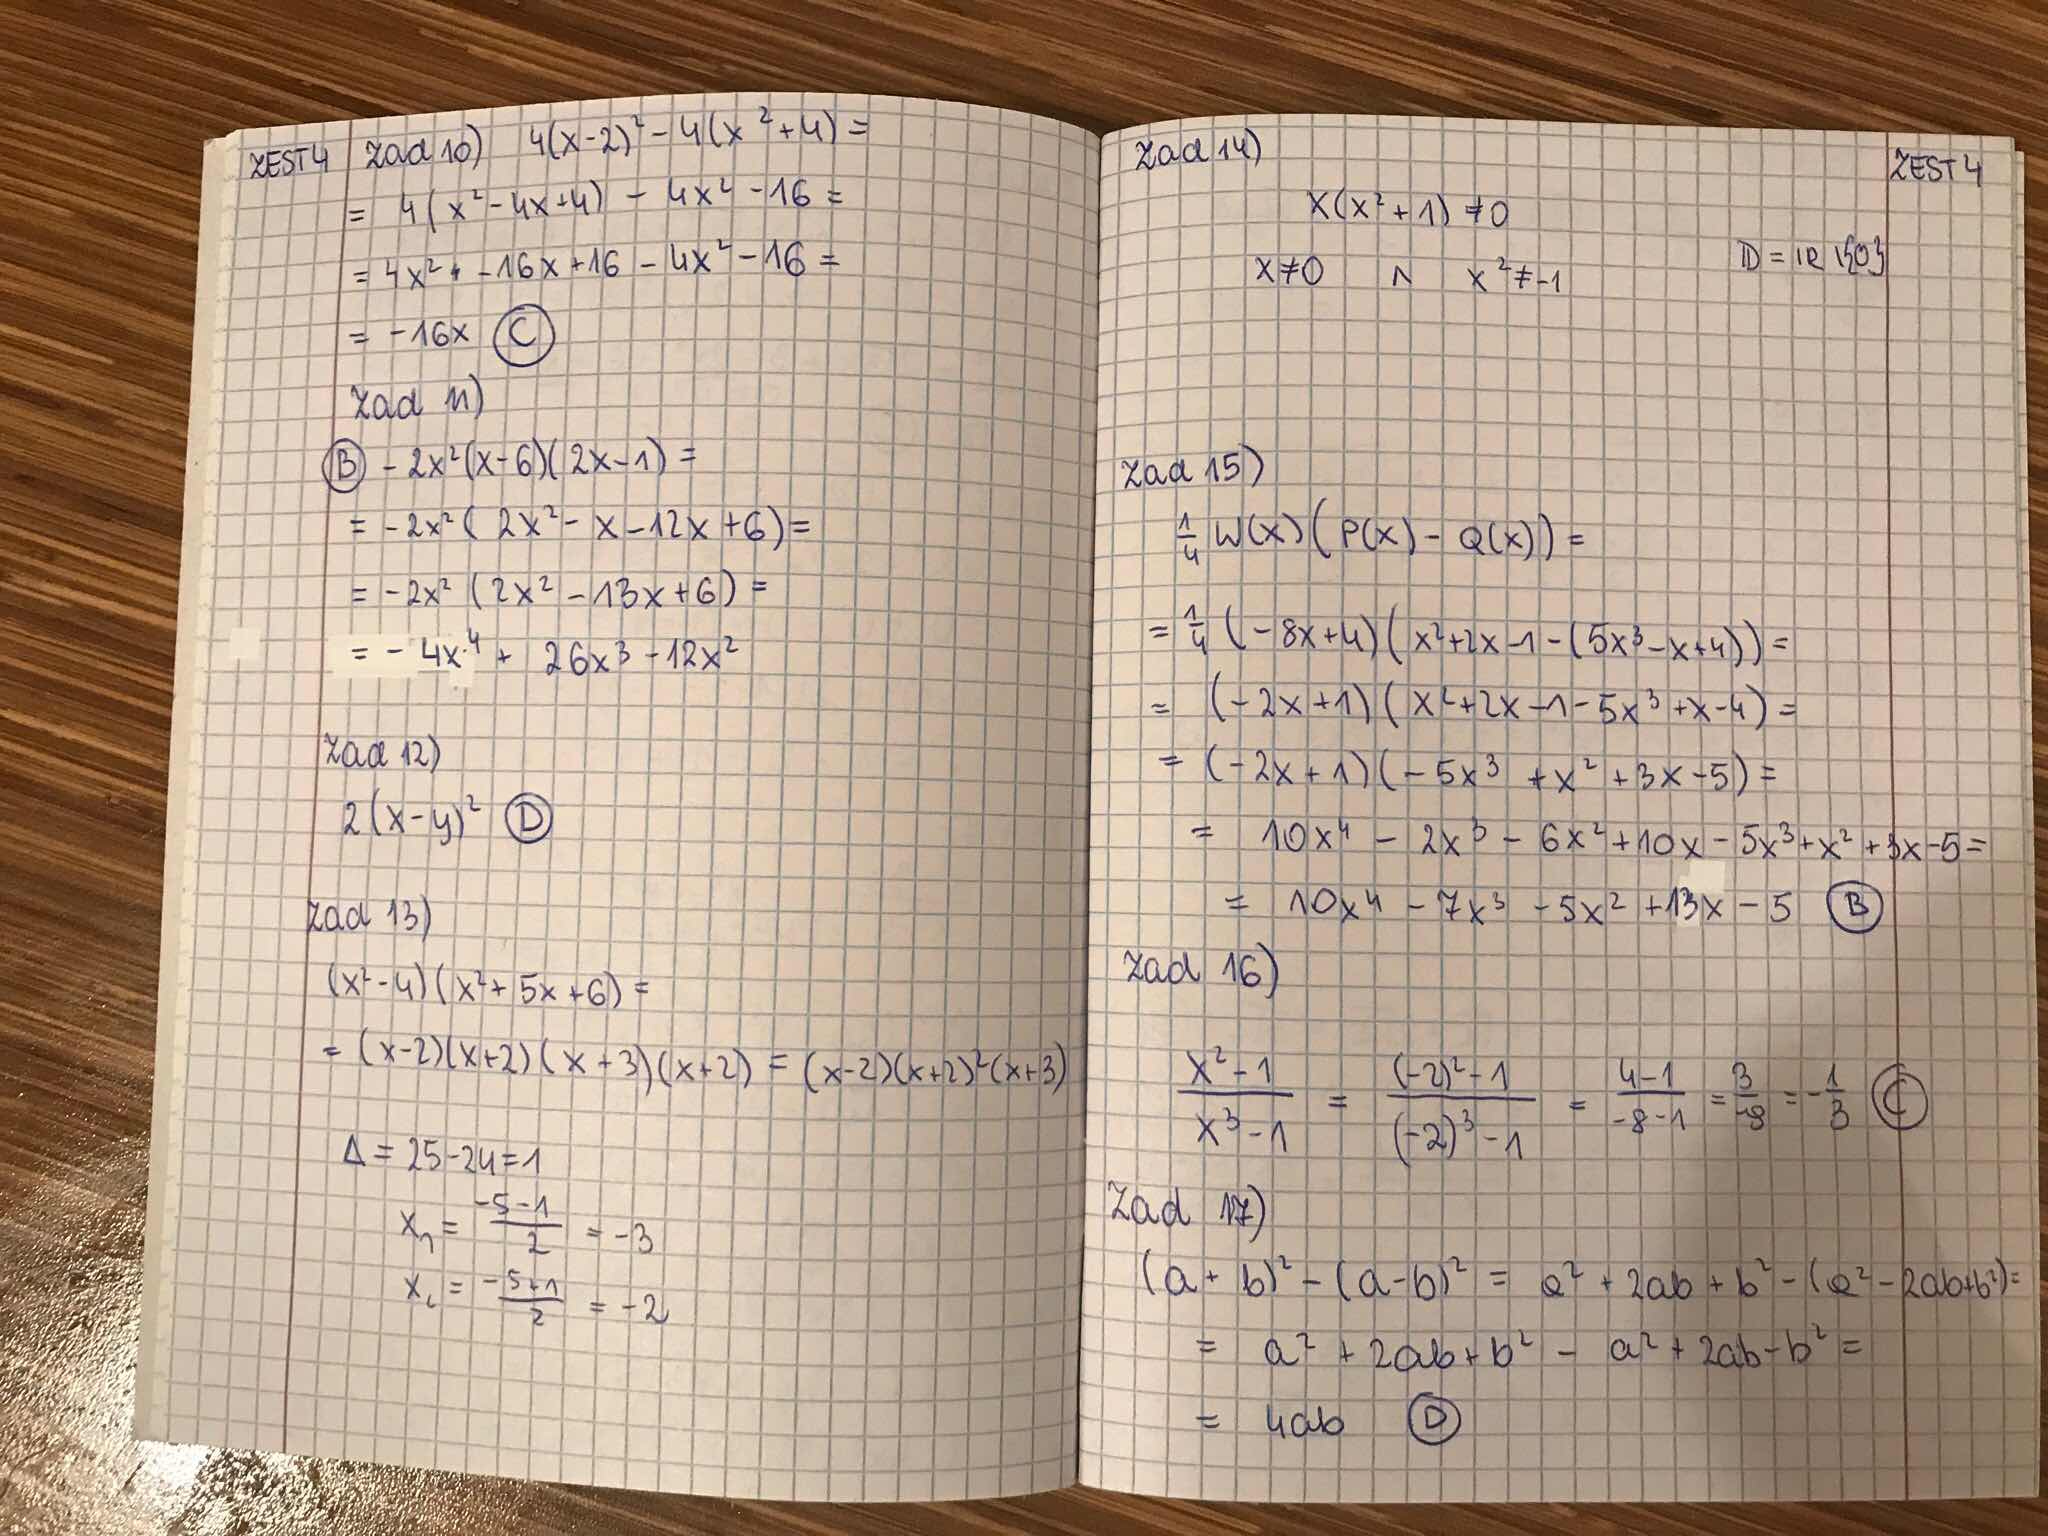 ZEST 4 Zad 10) 4(x-2)² - 4(x²+4) =
= 4(x² - 4x+4) - 4x² - 16 =
= 4x² + -16x+16 - 4x² - 16 =
= -16x C
Zad 11)
B - 2x²(x-6)(2x-1) =
= -2x²(2x² - x - 12x + 6) =
= -2x² (2x² - 13x+6) =
= - 4x⁴ + 26x³ - 12x²
Zad 12)
2(x-y)² D
Zad 13)
(x²-4)(x²+5x+6) =
= (x-2)(x+2)(x+3)(x+2) = (x-2)(x+2)²(x+3)
Δ = 25-24=1
x₁ = \frac{-5-1}{2} = -3
x₂ = \frac{-5+1}{2} = -2
Zad 14) ZEST 4
x(x²+1) ≠0
x≠0 ∧ x²≠-1 D = ℝ \{0}
Zad 15)
\frac{1}{4} W(x)(P(x) - Q(x)) =
= \frac{1}{4} (-8x+4)(x²+2x-1-(5x³-x+4)) =
= (-2x+1)(x²+2x-1-5x³+x-4) =
= (-2x+1)(-5x³ +x²+3x-5) =
= 10x⁴ - 2x³ - 6x²+10x - 5x³+x²+3x-5=
= 10x⁴ - 7x³ - 5x² +13x - 5 B
Zad 16)
\frac{x²-1}{x³-1} = \frac{(-2)²-1}{(-2)³-1} = \frac{4-1}{-8-1} = \frac{3}{-9} = -\frac{1}{3} C
Zad 17)
(a+b)² - (a-b)² = a² + 2ab + b² - (a² - 2ab+b²)=
= a² + 2ab+b² - a² + 2ab-b² =
= 4ab D